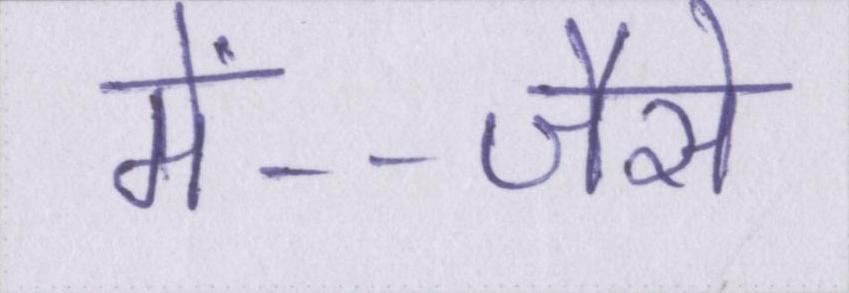 में--जैसे